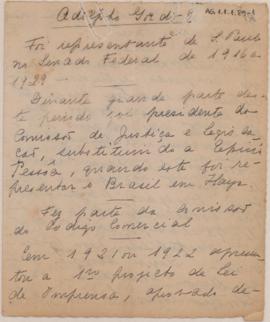 Adolpho Gordo
AG.1.1.1.89-1
Foi representante de S. Paulo
no Senado Federal de 1916 a
1929 -
Durante grande parte des-
te periodo foi presidente da
Comissão de Justiça e legis-
lação, substituindo a Epitacio
Pessoa, quando este foi re-
presentar o Brasil em Haya
Fez parte da comissão
do Codigo Comercial
Em 1921 ou 1922 apresen-
tou a 1º projecto de Lei
de Imprensa, apoiado de-